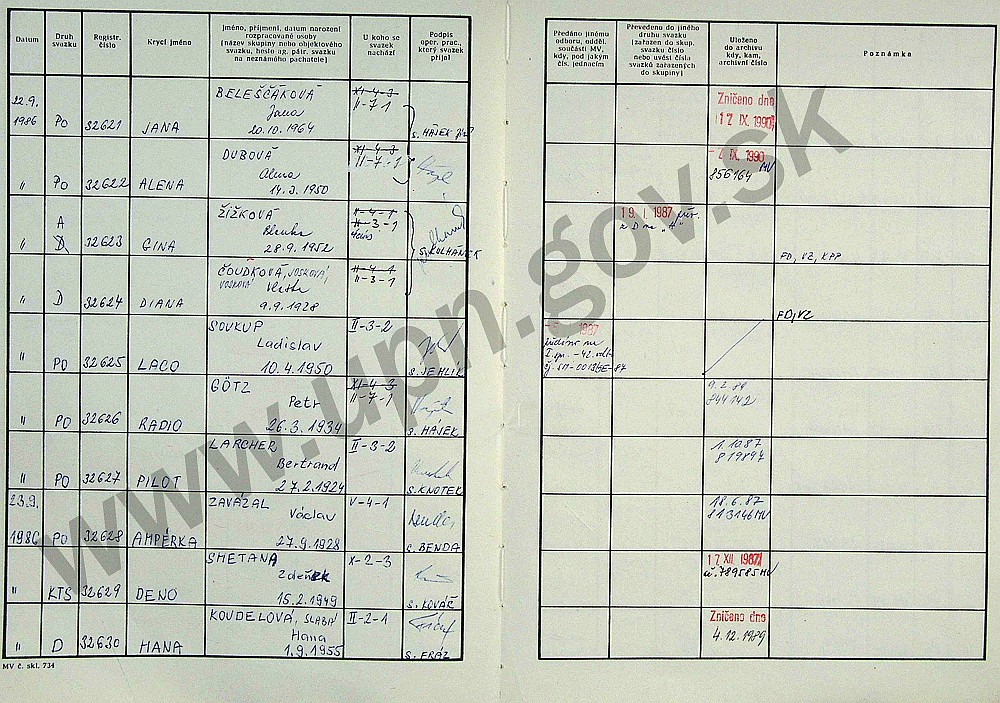 Datum
Druh svazku
Registr. číslo
Krycí jméno
Jméno, příjmení, datum narození
rozpracované osoby
(název skupiny nebo objektového
svazku, heslo ag. pátr. svazku
na neznámého pachatele)
U koho se svazek nachází
Podpis oper. prac., který svazek přijal
Předáno jinému
odboru, odděl.
součásti MV,
kdy, pod jakým
čís. jednacím
Převedeno do jiného
druhu svazku
(zařazen do skup.
svazku číslo
nebo uvést čísla
svazků zařazených
do skupiny)
Uloženo
do archivu
kdy, kam,
archivní číslo
Poznámka
22.9. 1986 PO 32621 JANA
BELEŠČÁKOVÁ
Jana
20.10.1964
XI-4-3
II-7-1
s. HÁJEK
Zničeno dne
17. IX. 1990
" PO 32622 ALENA
DUBOVÁ
Alena
14.3.1950
XI-4-3
II-7-1
IX. 1990
856164 MV
" A D 32623 GINA
ŽIŽKOVÁ
Blenka
28.9.1952
II-4-1
II-3-1
s. KOLHÁNEK
19. I. 1987
z D na „A"
FD, VZ, KPP
" D 32624 DIANA
ČOUDKOVÁ, VOSKOVÁ,
VOSKOVÁ
Vlasta
9.9.1928
II-4-1
II-3-1
FD, VZ
" PO 32625 LACO
SOUKUP
Ladislav
10.4.1950
II-3-2
s. JEHLÍK
1987
" PO 32626 RADIO
GÖTZ
Petr
26.3.1934
XI-4-3
II-7-1
s. HÁJEK
9.2.88
844142
" PO 32627 PILOT
LARCHER
Bertrand
27.2.1924
II-3-2
s. KNOTEK
1.10.87
819897
23.9. 1986 PO 32628 AMPÉRKA
ZAVÁZAL
Václav
27.9.1928
V-4-1
s. BENDA
18.6.87
813146 MV
" KTS 32629 DENO
SMETANA
Zdeněk
15.2.1949
X-2-3
s. KOVÁČ
17. XII. 1987
789585 MV
" D 32630 HANA
KOUDELOVÁ, SLABÁ
Hana
1.9.1955
II-2-1
s. FRÁZ
Zničeno dne
4.12.1989
MV č. skl. 734
www.upn.gov.sk